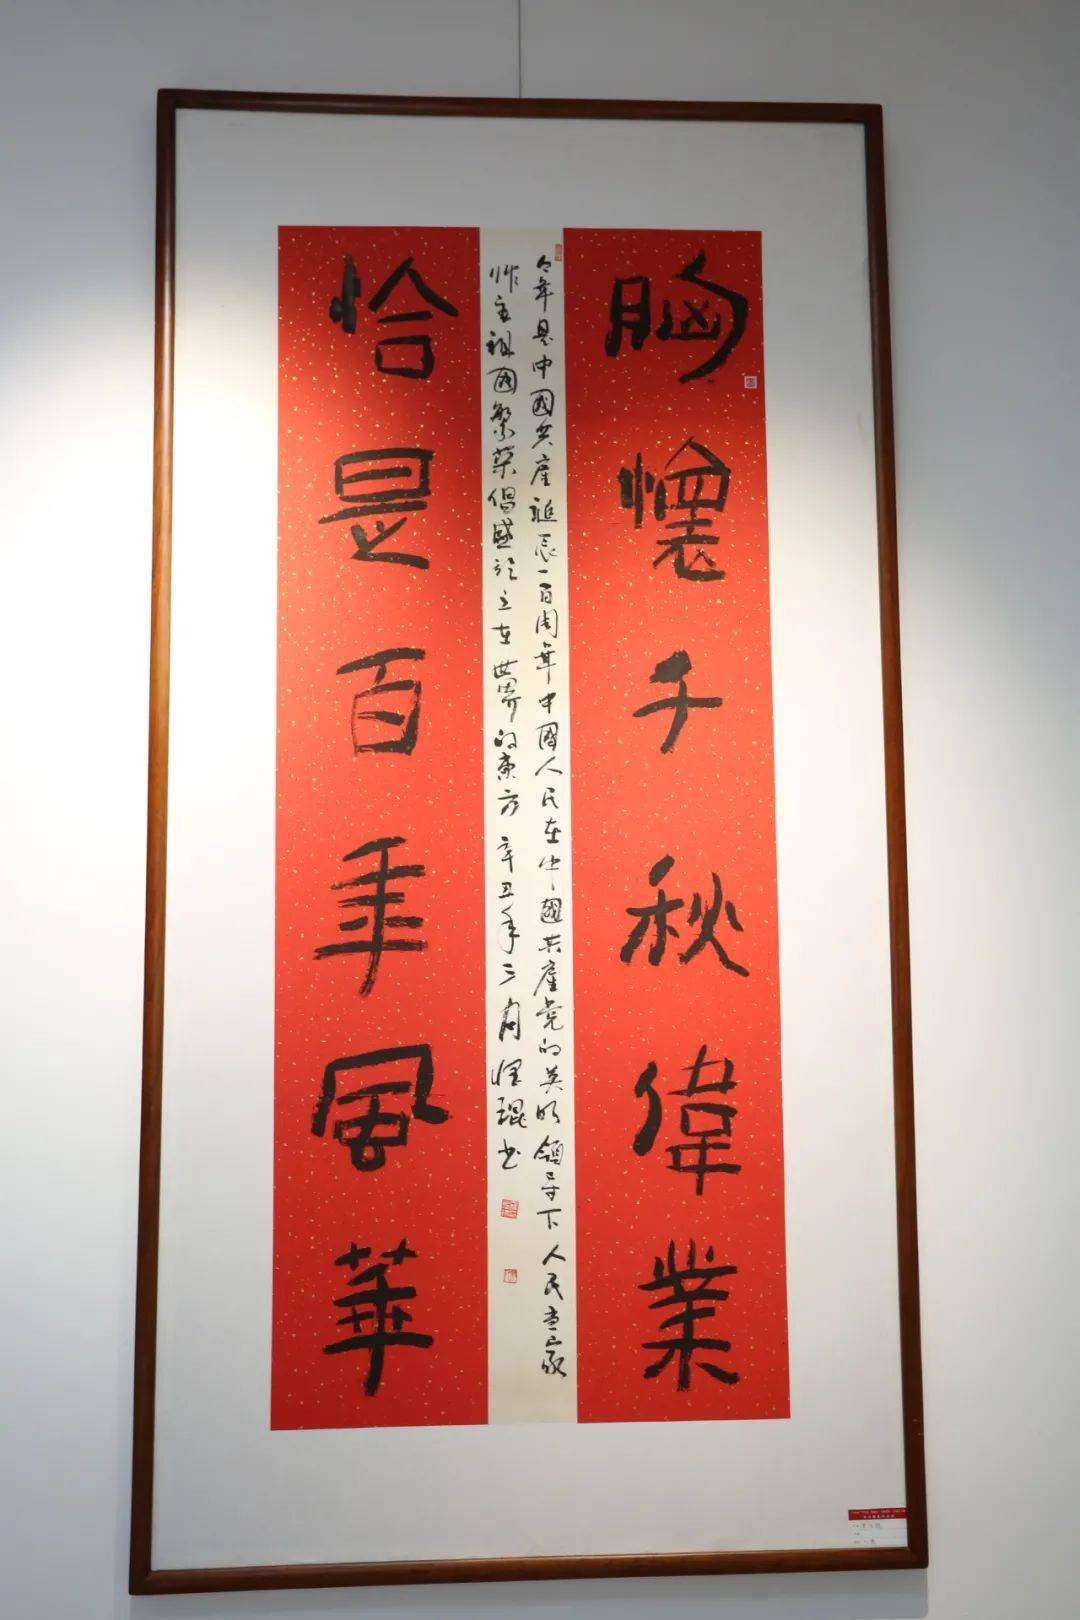 胸懷千秋偉業
今年是中國共產誕辰一百周年中國人民在中國共產党的英明領导下人民当家
作主祖國繁榮倡盛立在世界的東方 辛丑年三月琨书
恰是百年風華